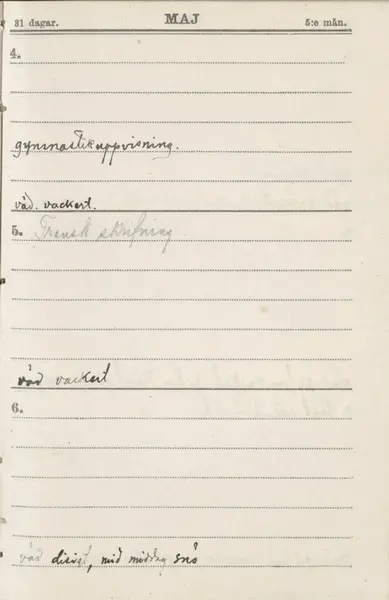 31 dagar. MAJ 5:e mån.
4.
gymnastikuppvisning.
väd. vackert.
5. Fransk skrifning
väd vackert
6.
väd disigt, mid middag snö